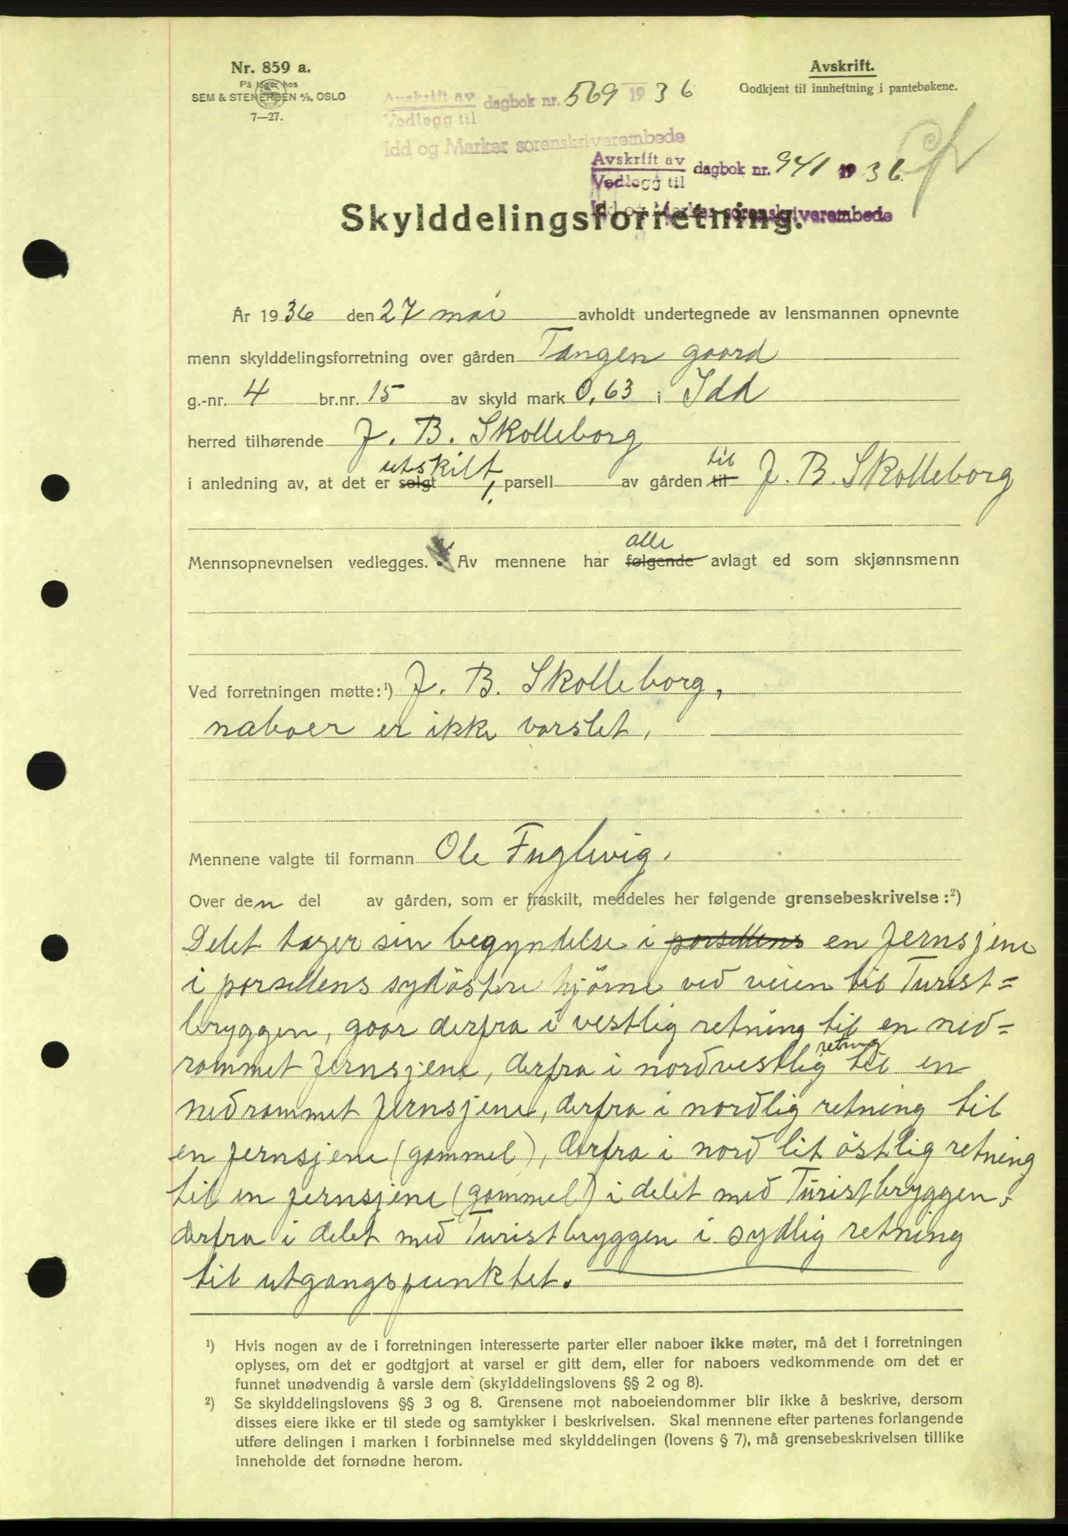 Nr. 859 a.
På lager hos
SEM & STENERSEN A/S, OSLO
7—27.
Avskrift.
Godkjent til innheftning i pantebøkene.
Avskrift av
Vedlegg til dagbok nr. 569 1936
Idd og Marker sorenskriverembede
Avskrift av
Vedlegg til dagbok nr. 941 1936.
Idd og Marker sorenskriverembede
Skylddelingsforretning.
År 1936 den 27 mai avholdt undertegnede av lensmannen opnevnte
menn skylddelingsforretning over gården Tangen gaard
g.-nr. 4 br.nr. 15 av skyld mark 0,63 i Idd
herred tilhørende J. B. Skolleborg
i anledning av, at det er solgt utskilt 1 parsell av gården til til J. B. Skolleborg
Mennsopnevnelsen vedlegges. Av mennene har følgende alle avlagt ed som skjønnsmenn
Ved forretningen møtte:¹) J. B. Skolleborg,
naboer er ikke varslet.
Mennene valgte til formann Ole Fuglevig.
Over den del av gården, som er fraskilt, meddeles her følgende grensebeskrivelse:²)
Delet tager sin begyndelse i parsellens en Jernsjene
i parsellens sydöstre hjörne ved veien til Turist=
bryggen, gaar derfra i vestlig retning til en ned=
rammet Jernsjene, derfra i nordvestlig retning til en
nedrammet Jernsjene, derfra i nordlig retning til
en jernsjene (gammel), derfra i nord lit östlig retning
til en jernsjene (gammel) i delet med Turistbryggen,
derfra i delet med Turistbryggen i sydlig retning
til utgangspunktet.
¹) Hvis nogen av de i forretningen interesserte parter eller naboer ikke møter, må det i forretningen
oplyses, om det er godtgjort at varsel er gitt dem, eller for naboers vedkommende om det er
funnet unødvendig å varsle dem (skylddelingslovens §§ 2 og 8).
²) Se skylddelingslovens §§ 3 og 8. Grensene mot naboeiendommer blir ikke å beskrive, dersom
disses eiere ikke er til stede og samtykker i beskrivelsen. Skal mennene efter partenes forlangende
utføre delingen i marken i forbinnelse med skylddelingen (lovens § 7), må grensebeskrivelsen tillike
inneholde det fornødne herom.